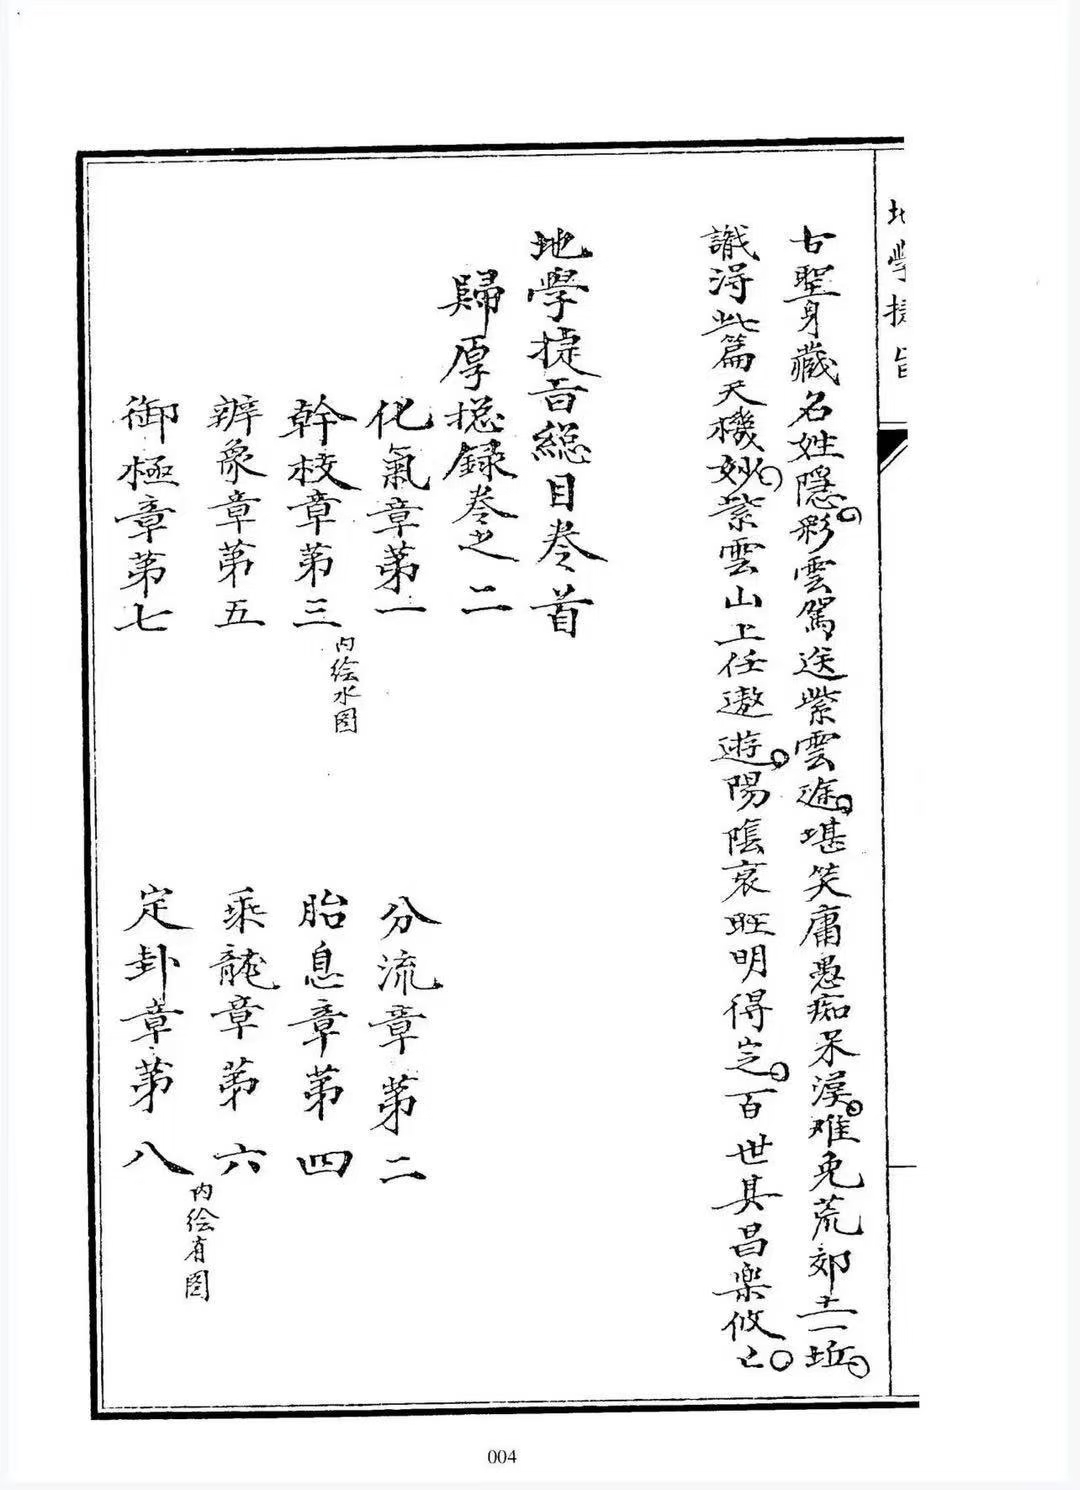 地學捷旨
古聖身藏名姓隱。彩雲駕送紫雲遊。堪笑庸愚痴呆漢。难免荒郊土一坵。
識淂此篇天機妙。紫雲山上任遨遊。陽陰衰旺明得定。百世其昌樂攸匕。
地學捷旨総目卷首
歸厚捴録卷之二
化氣章第一
分流章第二
幹枝章第三 内绘水图
胎息章第四
辨象章第五
乘龍章第六
御極章第七
定卦章第八 内绘有图
004